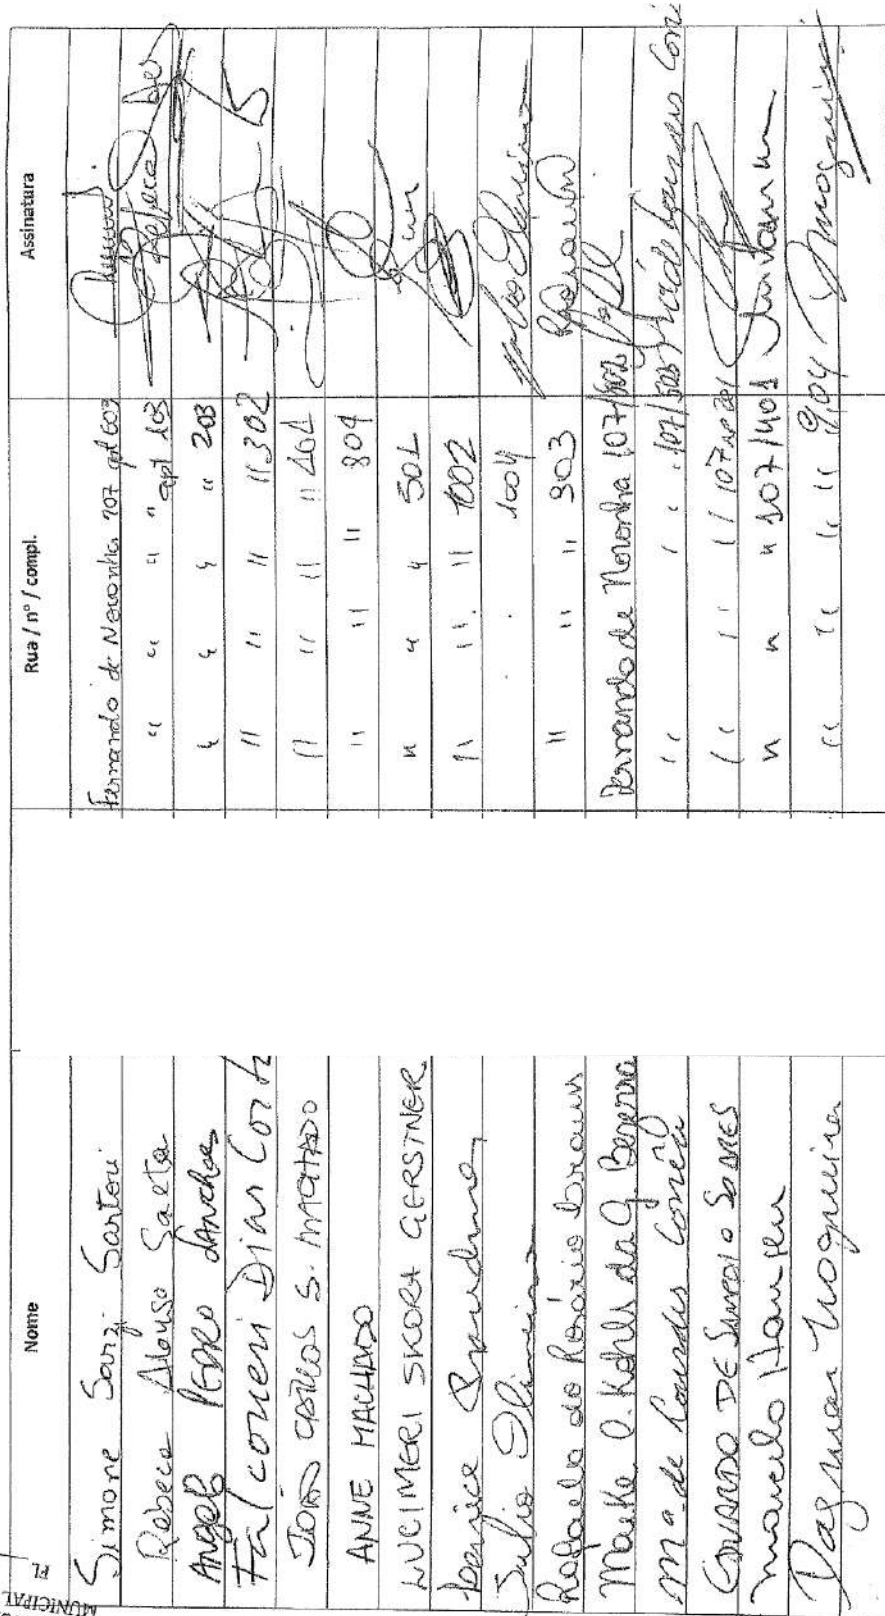 MUNICIPAL
PL
Nome Rua / nº / compl. Assinatura
Simone Sarzi Sartori Fernando de Noronha 107 apt 603
Rebeca Alonso Saeta " " " " apt 103 Rebeca
Angela Pedro Sanches " " " " 203
Falconeri Dias " " " " 302
JOÃO CARLOS S. MACHADO " " " "
ANNE MACHADO " " " 801
LUCIMERI SKORA GERSTNER " " " 501
Berenice " " " 1002
Julio 1004 Julio
Rafaela do Rosário " " " 303
Q. Kohls da G. Bezerra Fernando de Noronha 107/
Mª de Lourdes Corrêa " " " 107/ de Lourdes
DE SAMPAIO SOARES " " " 107
Marcelo " " " " 107/401
Dagmar Nogueira " " " " 904 Nogueira